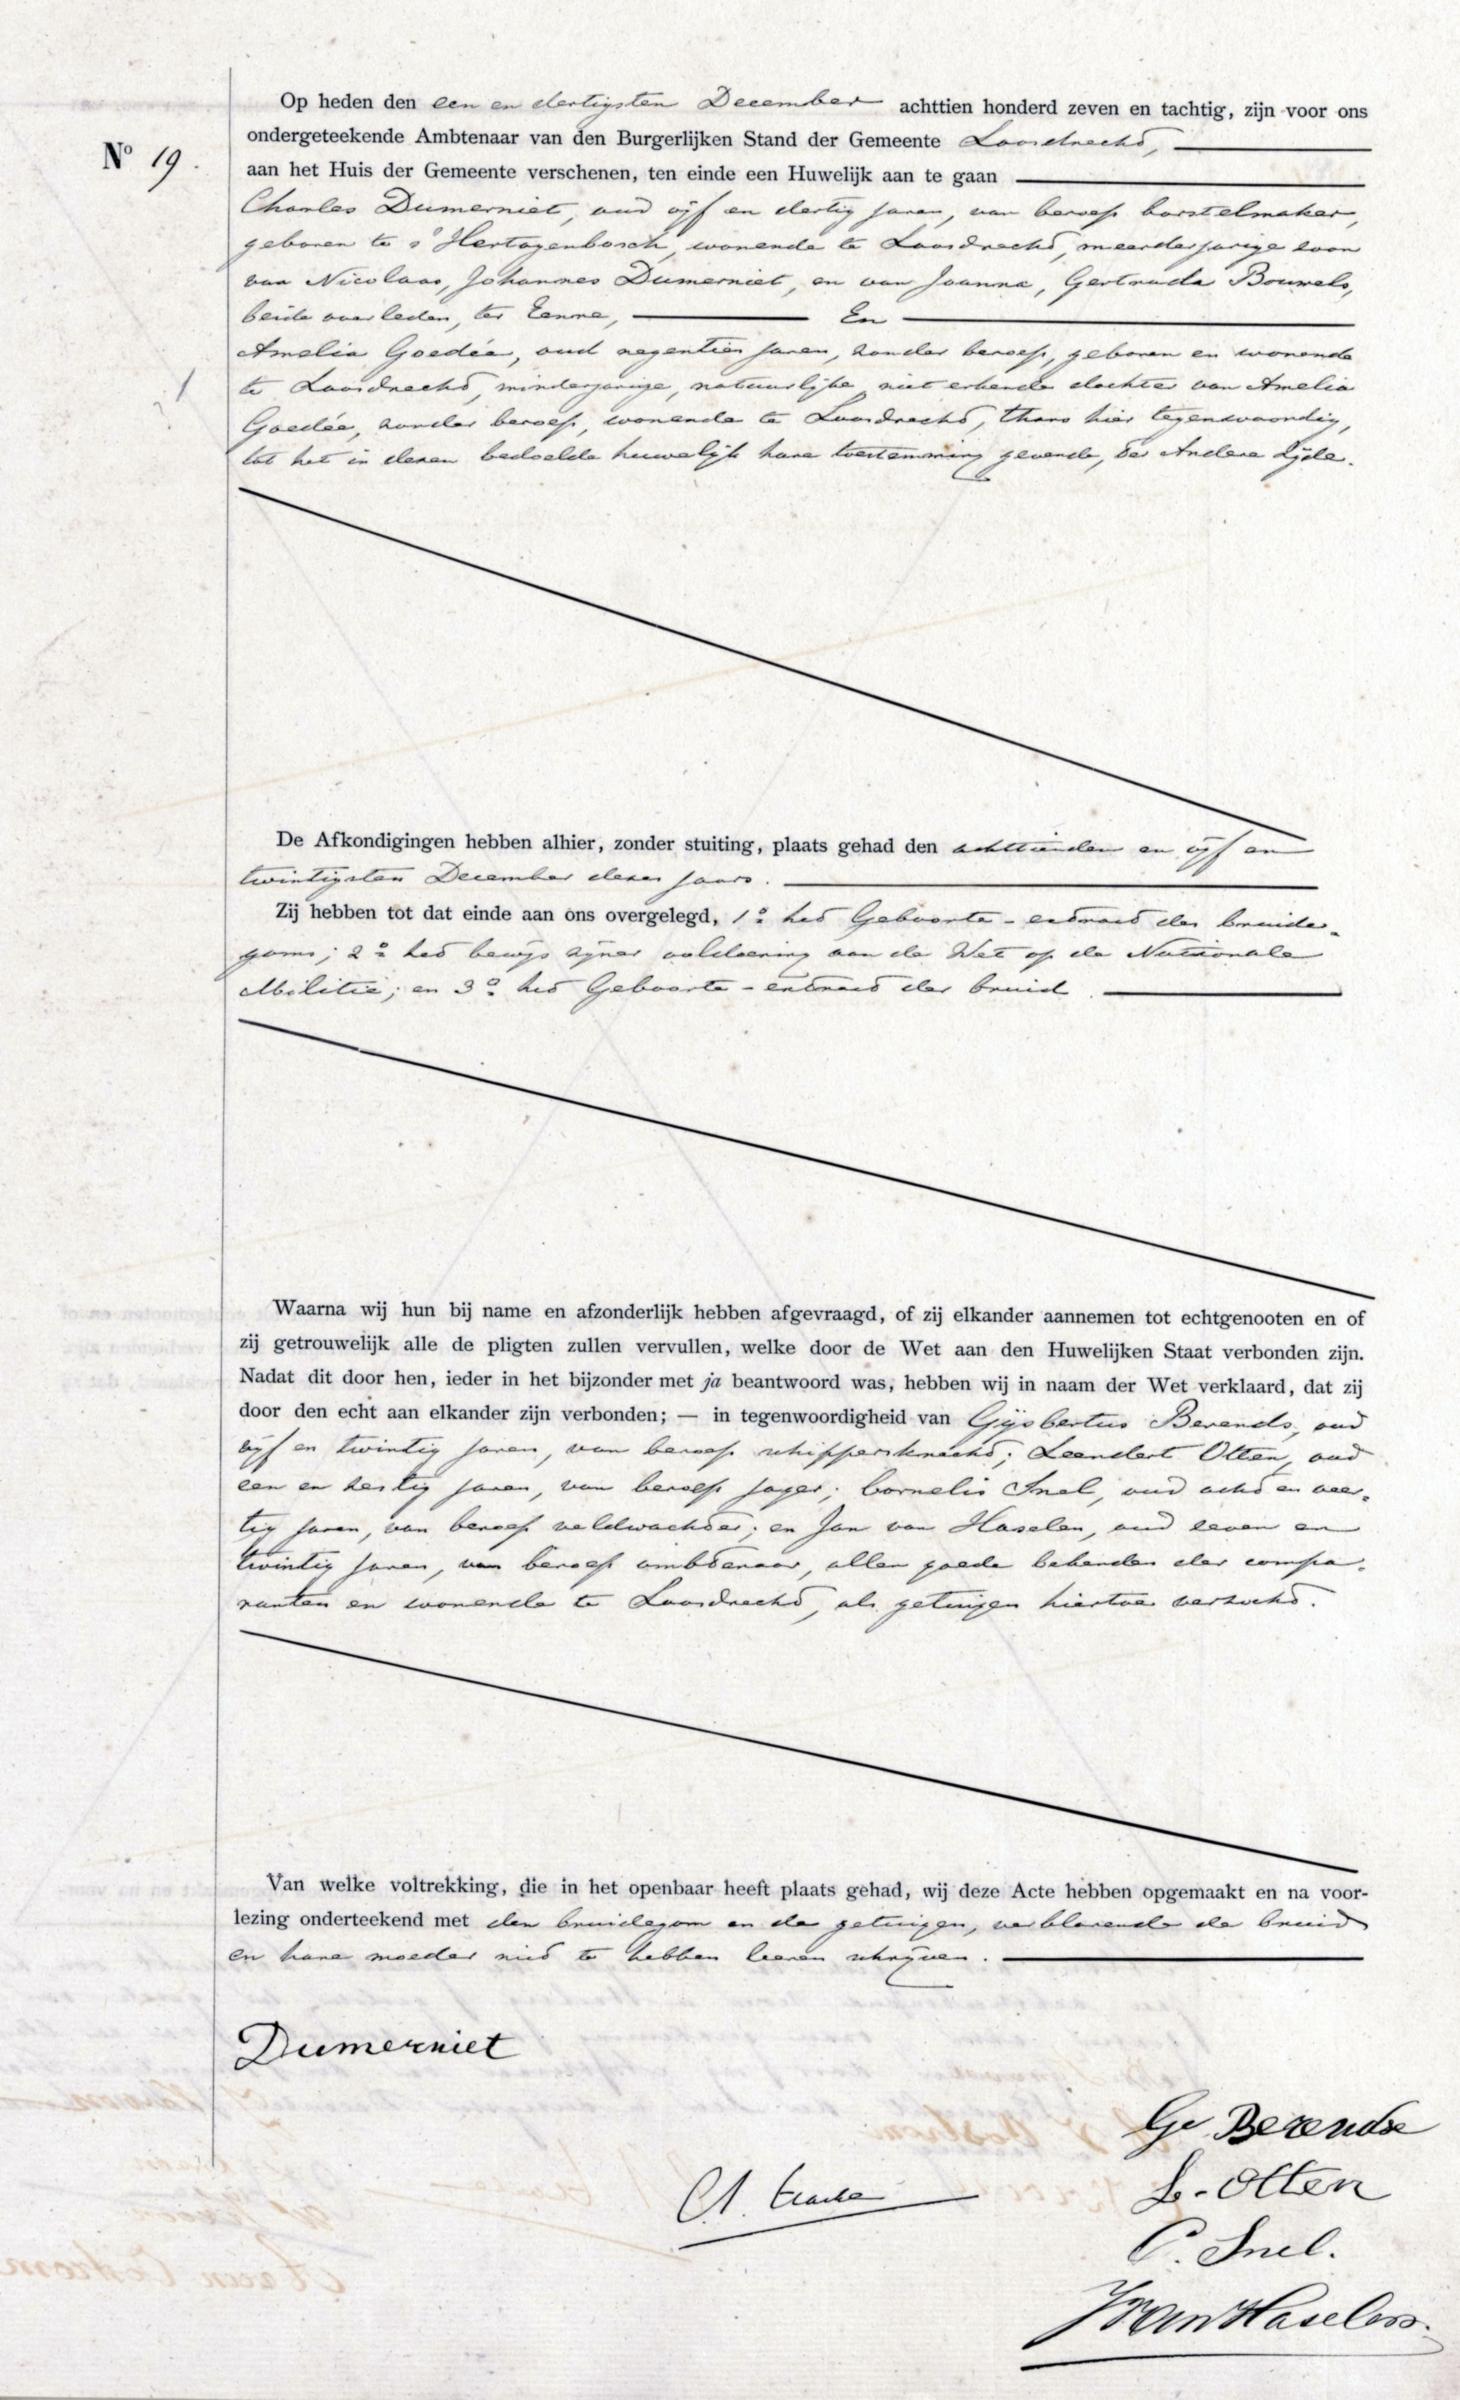 Op heden den een en dertigsten December achttien honderd zeven en tachtig, zijn voor ons
Nº 19.
ondergeteekende Ambtenaar van den Burgerlijken Stand der Gemeente Loosdrecht,
aan het Huis der Gemeente verschenen, ten einde een Huwelijk aan te gaan
Charles Dumerniet, oud vijf en dertig jaren, van beroep borstelmaker,
geboren te s' Hertogenbosch, wonende te Loosdrecht, meerderjarige zoon
van Nicolaas, Johannes Dumerniet, en van Joanna, Gertruda Bouwels,
beide overleden, ter Eenre, En
Amelia Goedée, oud negentien jaren, zonder beroep, geboren en wonende
te Loosdrecht, minderjarige, natuurlijke niet erkende dochter van Amelia
Goedée, zonder beroep, wonende te Loosdrecht, thans hier tegenwoordig,
tot het in dezen bedoelde huwelijk hare toestemming gevende, ter Andere Zijde.
De Afkondigingen hebben alhier, zonder stuiting, plaats gehad den achttienden en vijf en
twintigsten December dezes jaars.
Zij hebben tot dat einde aan ons overgelegd, 1º het Geboorte-extract des bruide-
goms; 2º het bewijs zijner voldoening aan de Wet op de Nationale
Militie; en 3º het Geboorte-extract der bruid.
Waarna wij hun bij name en afzonderlijk hebben afgevraagd, of zij elkander aannemen tot echtgenooten en of
zij getrouwelijk alle de pligten zullen vervullen, welke door de Wet aan den Huwelijken Staat verbonden zijn.
Nadat dit door hen, ieder in het bijzonder met ja beantwoord was, hebben wij in naam der Wet verklaard, dat zij
door den echt aan elkander zijn verbonden; — in tegenwoordigheid van Gijsbertus Berends, oud
vijf en twintig jaren, van beroep schippersknecht; Leendert Otten, oud
een en zestig jaren, van beroep jager; Cornelis Snel, oud acht en veer-
tig jaren, van beroep veldwachter; en Jan van Haselen, oud zeven en
twintig jaren, van beroep ambtenaar, allen goede bekenden der compa-
ranten en wonende te Loosdrecht, als getuigen hiertoe verzocht.
Van welke voltrekking, die in het openbaar heeft plaats gehad, wij deze Acte hebben opgemaakt en na voor-
lezing onderteekend met den bruidegom en de getuigen, verklarende de bruid
en hare moeder niet te hebben leeren schrijven.
Dumerniet
Gs Berendse
L. Otten
C. Snel.
JvanHaselen.